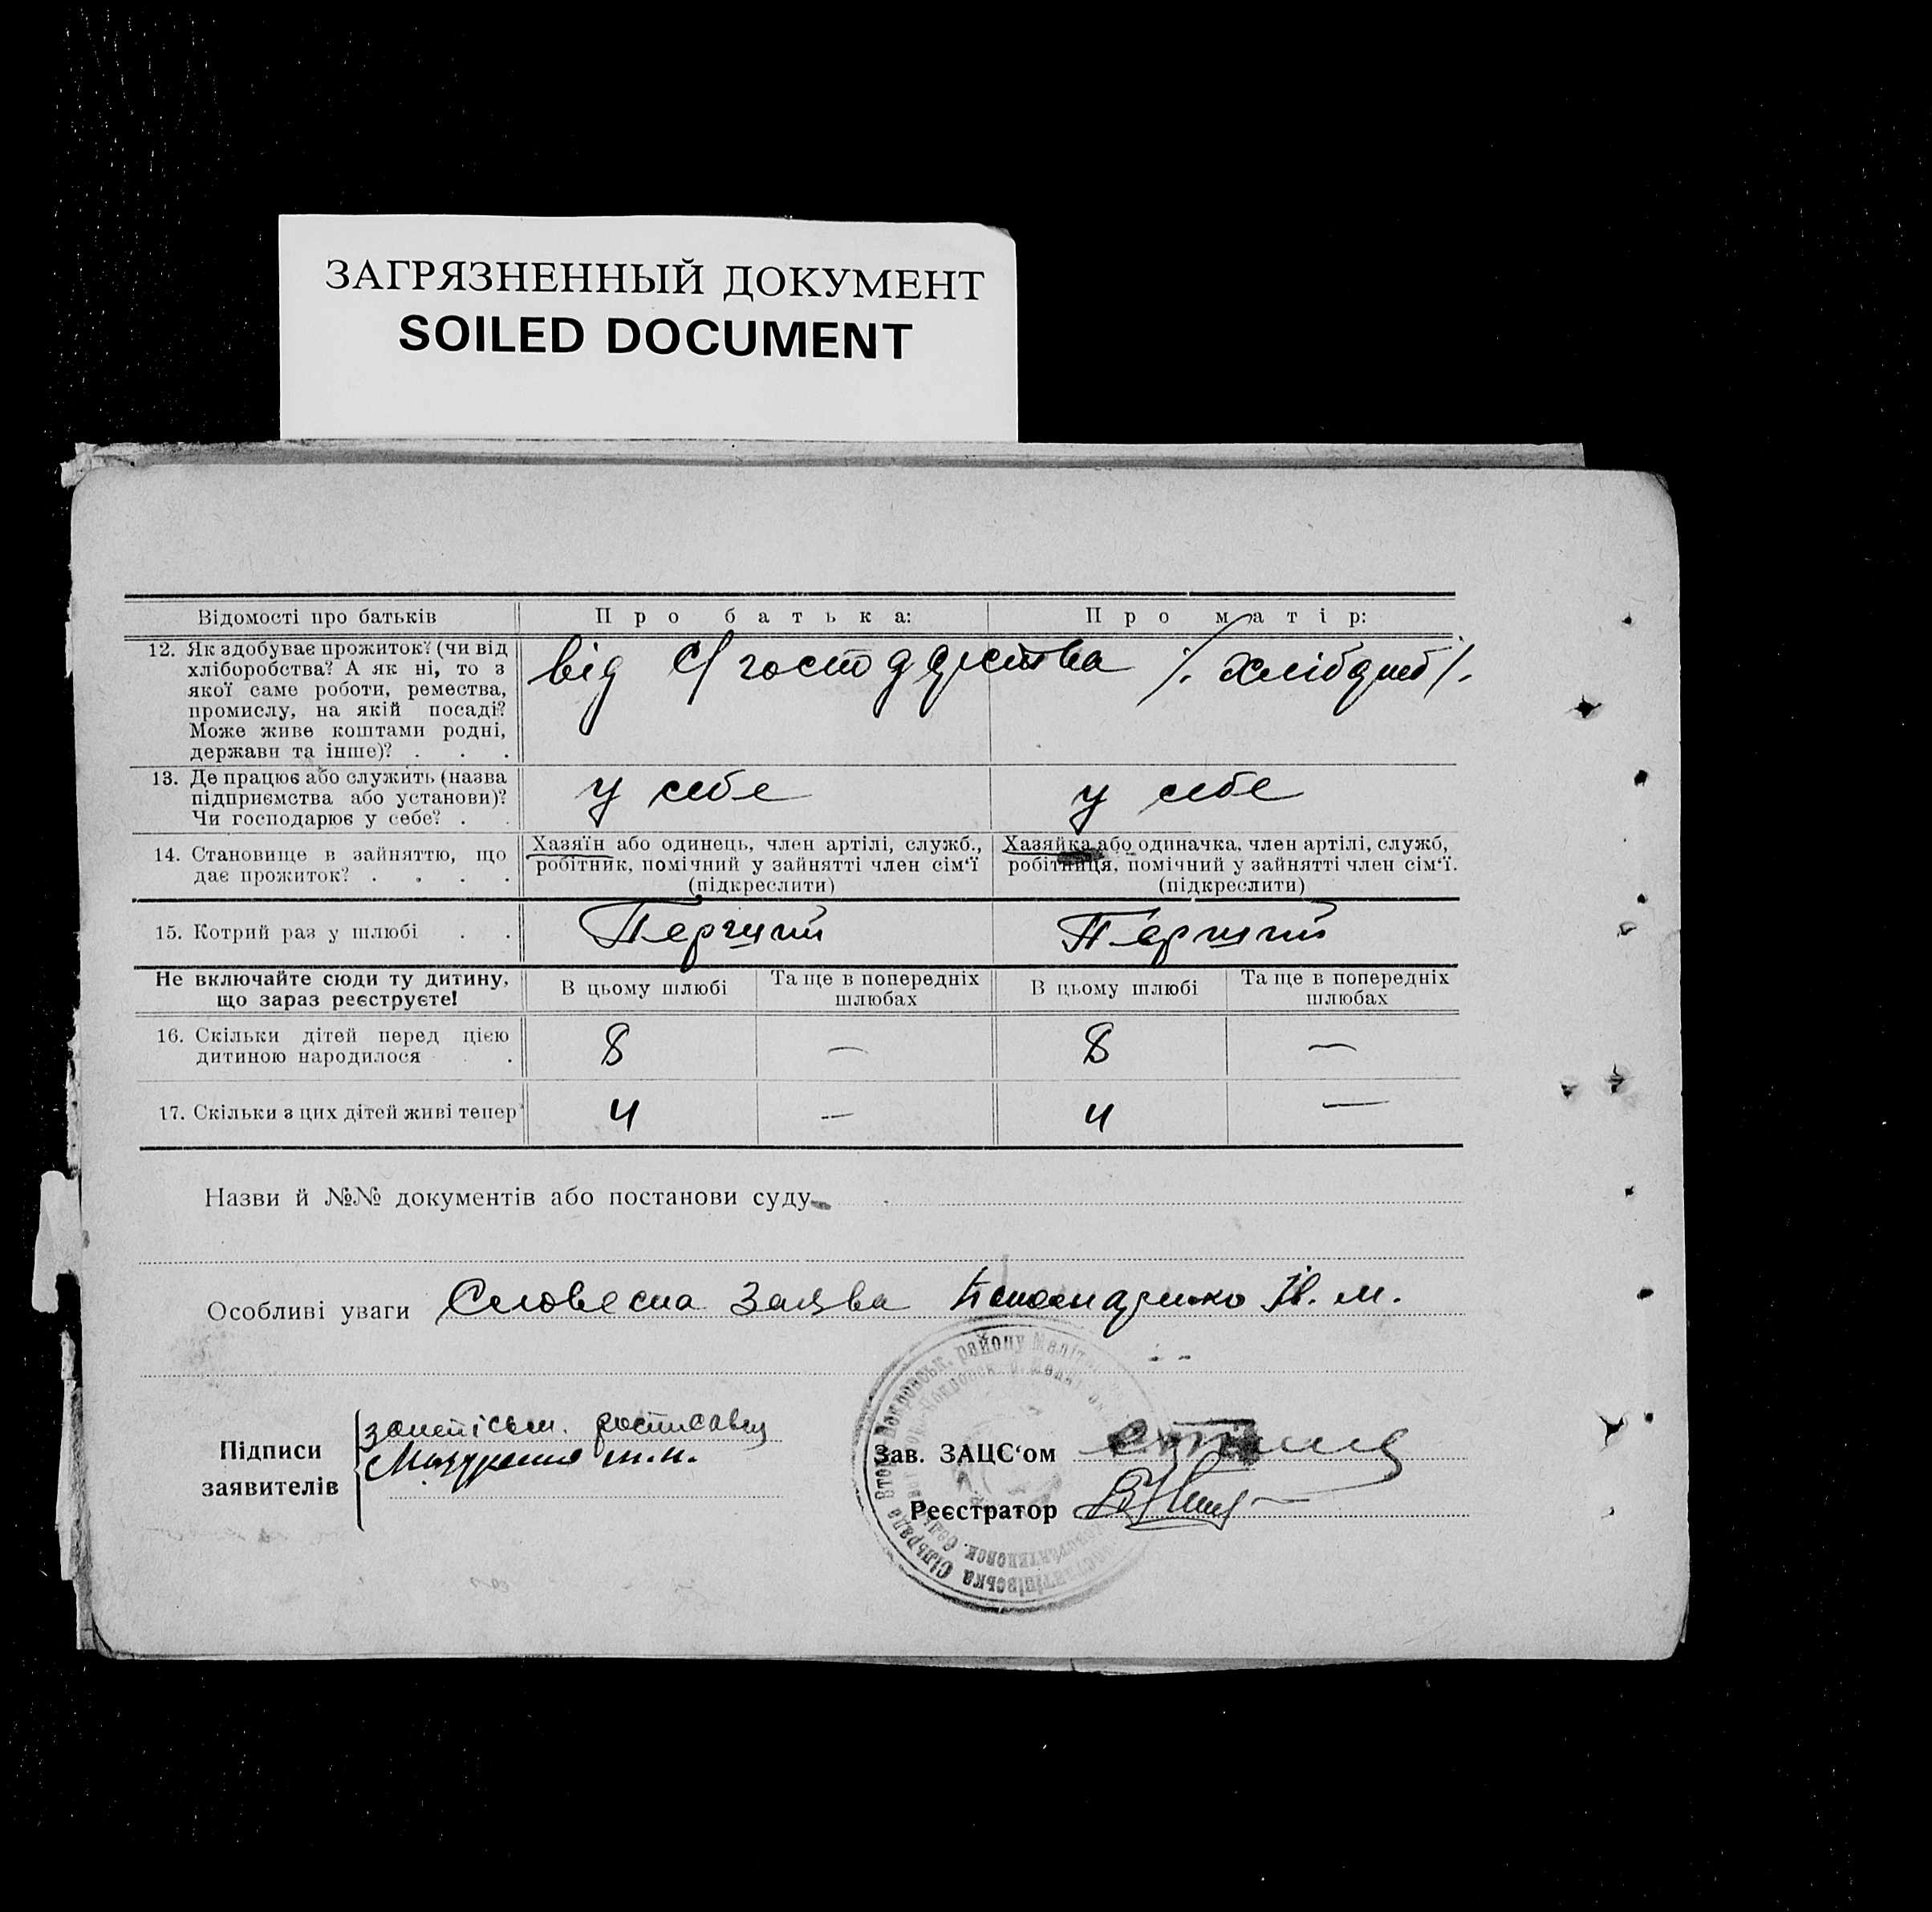 ЗАГРЯЗНЕННЫЙ ДОКУМЕНТ
SOILED DOCUMENT
Відомості про батьків
Про батька:
Про матір:
12. Як здобуває прожиток? (чи від
хліборобства? А як ні, то з
якої саме роботи, ремества,
промислу, на якій посаді?
Може живе коштами родні,
держави та інше)? . . .
від С/господарства /. хлібороб/.
13. Де працює або служить (назва
підприємства або установи)?
Чи господарює у себе? . .
у себе
у себе
14. Становище в зайняттю, що
дає прожиток? . . . .
Хазяїн або одинець, член артілі, служб.,
робітник, помічний у зайнятті член сім'ї
(підкреслити)
Хазяйка або одиначка, член артілі, служб,
робітниця, помічний у зайнятті член сім'ї.
(підкреслити)
15. Котрий раз у шлюбі . .
Перший
Перший
Не включайте сюди ту дитину,
що зараз реєструєте!
В цьому шлюбі
Та ще в попередніх
шлюбах
В цьому шлюбі
Та ще в попередніх
шлюбах
16. Скільки дітей перед цією
дитиною народилося . .
8
—
8
—
17. Скільки з цих дітей живі тепер
4
—
4
—
Назви й №№ документів або постанови суду
Особливі уваги Словесна заява Пономаренко Ів. м.
Підписи
заявителів
росписався
Зав. ЗАЦС'ом
Реєстратор
Сільрада
Покровськ. району